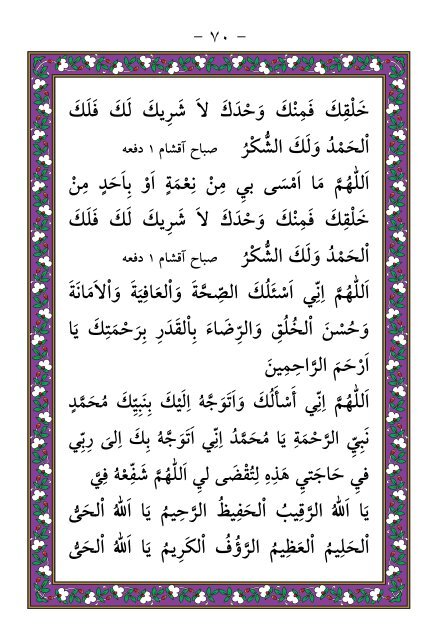 - ٧٠ -
خَلْقِكَ فَمِنْكَ وَحْدَكَ لاَ شَرِيكَ لَكَ فَلَكَ
اْلحَمْدُ وَلَكَ الشُّكْرُ صباح آقشام ١ دفعه
اَللّٰهُمَّ مَا اَمْسَى بيِ مِنْ نِعْمَةٍ اَوْ بِاَحَدٍ مِنْ
خَلْقِكَ فَمِنْكَ وَحْدَكَ لاَ شَرِيكَ لَكَ فَلَكَ
اْلحَمْدُ وَلَكَ الشُّكْرُ صباح آقشام ١ دفعه
اَللّٰهُمَّ اِنِّي اَسْئَلُكَ الصِّحَّةَ وَاْلعَافِيَةَ وَاْلاَمَانَةَ
وَحُسْنَ اْلخُلُقِ وَالرِّضَاءَ بِاْلقَدَرِ بِرَحْمَتِكَ يَا
اَرْحَمَ الرَّاحِمِينَ
اَللّٰهُمَّ اِنِّي أَسْأَلُكَ وَاَتَوَجَّهُ اِلَيْكَ بِنَبِيِّكَ مُحَمَّدٍ
نَبِيِّ الرَّحْمَةِ يَا مُحَمَّدُ اِنِّي اَتَوَجَّهُ بِكَ اِلىَ رَبِّي
فيِ حَاجَتيِ هَذِهِ لِتُقْضَى ليِ اَللّٰهُمَّ شَفِّعْهُ فِيَّ
يَا اَللّٰهُ الرَّقِيبُ اْلحَفِيظُ الرَّحِيمُ يَا اَللّٰهُ اْلحَىُّ
اْلحَلِيمُ اْلعَظِيمُ الرَّؤُفُ اْلكَرِيمُ يَا اَللّٰهُ اْلحَىُّ